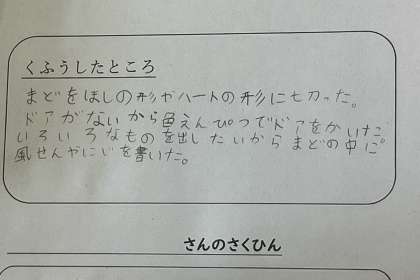 くふうしたところ
まどをほしの形やハートの形に切った。
ドアがないから色えんぴつでドアをかいた。
いろいろなものを出したいからまどの中に
風せんやにじを書いた。
さんのさくひん